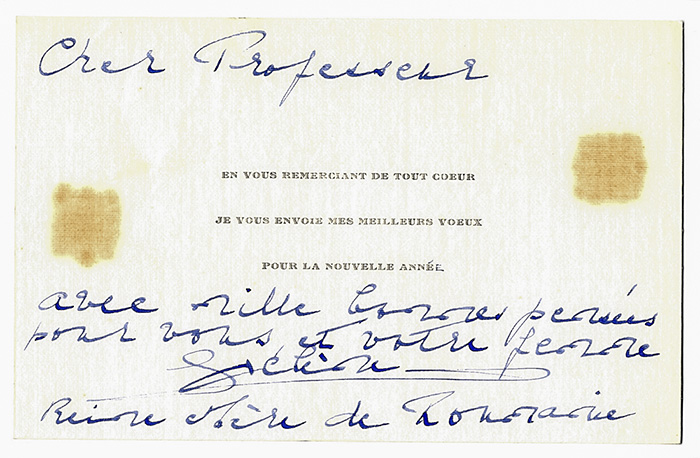 Cher Professeur
EN VOUS REMERCIANT DE TOUT COEUR
JE VOUS ENVOIE MES MEILLEURS VOEUX
POUR LA NOUVELLE ANNÉE
avec mille bonnes pensées
pour vous et votre femme
Hélène
Reine Mère de Roumanie